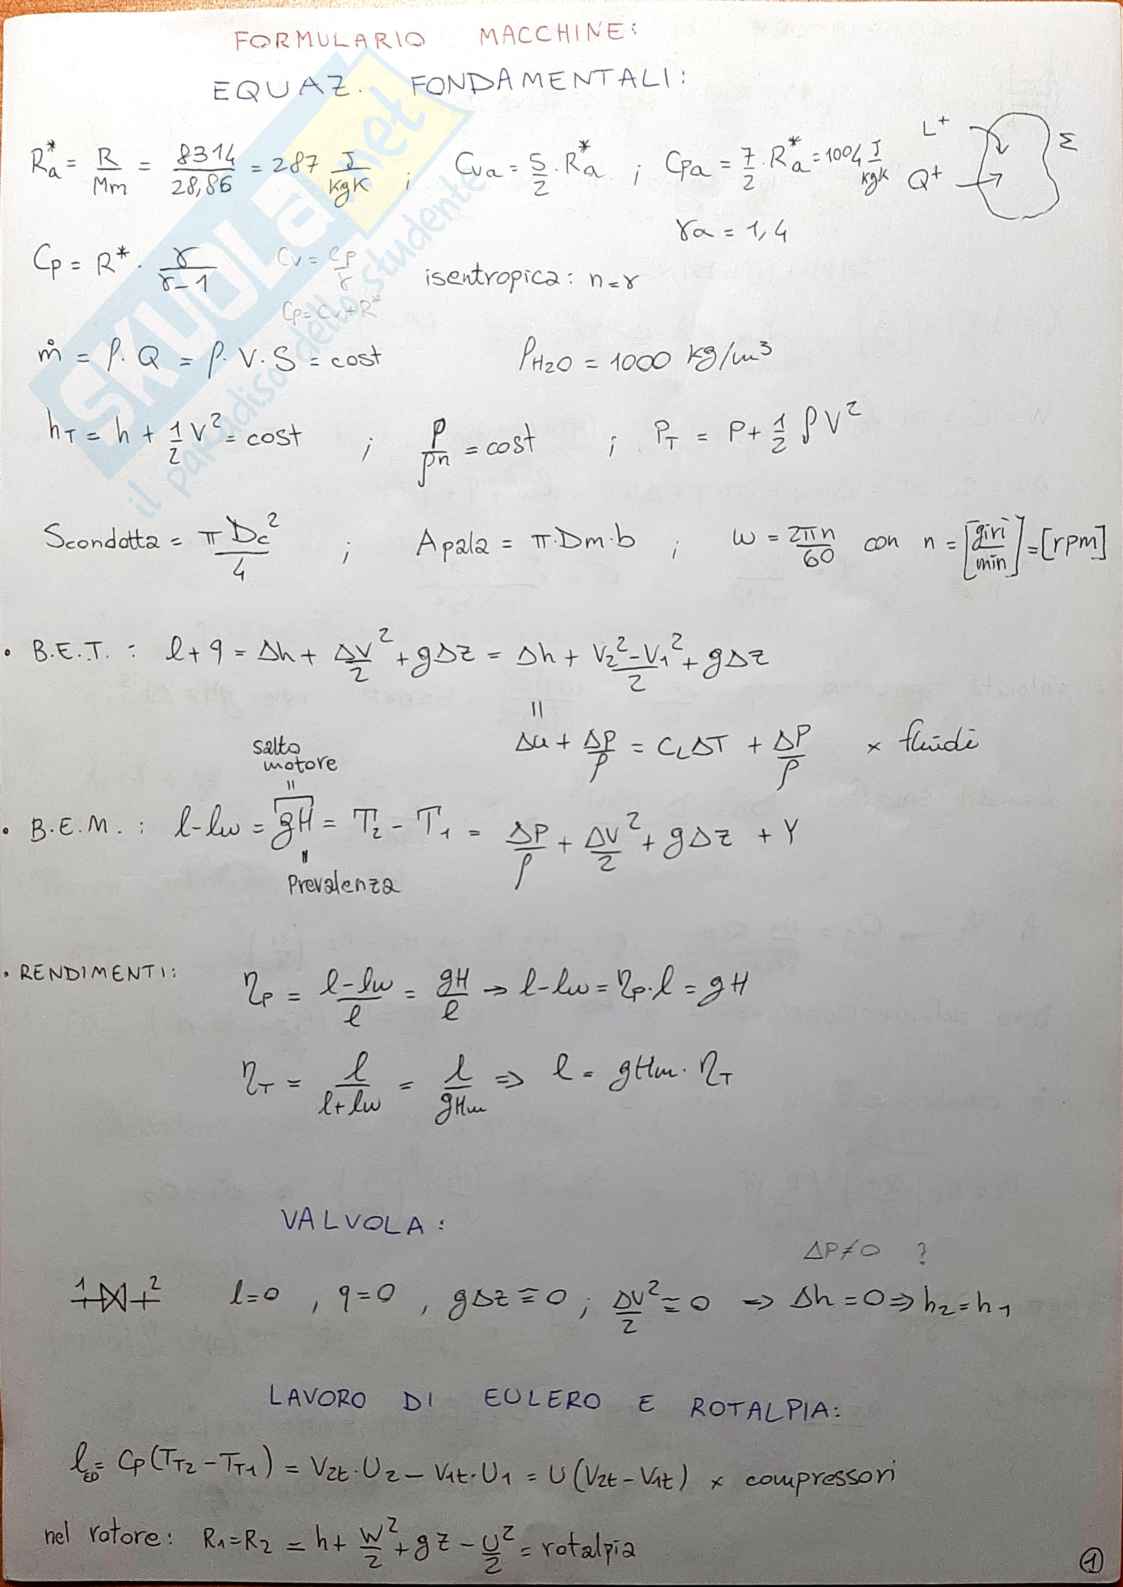 FORMULARIO MACCHINE:
EQUAZ. FONDAMENTALI:
Ra* = R/Mm = 8314/28,86 = 287 J/kgK ; Cva = 5/2 · Ra* ; Cpa = 7/2 · Ra* = 1004 J/kgK
L+
Q+
Σ
γa = 1,4
Cp = R* · γ/γ-1
Cv = Cp/γ
isentropica: n=γ
Cp=Cv+R*
ṁ = ρ·Q = ρ·V·S = cost
ρH2O = 1000 kg/m³
hT = h + 1/2 V² = cost ; P/ρn = cost ; PT = P + 1/2 ρV²
Scondotta = πDc²/4 ; Apala = π·Dm·b ; ω = 2πn/60 con n = [giri/min] = [rpm]
• B.E.T. : l+q = Δh + ΔV²/2 + gΔz = Δh + V2²-V1²/2 + gΔz
=
Δu + ΔP/ρ = CLΔT + ΔP/ρ × fluidi
salto motore
=
• B.E.M. : l-lw = gH = T2 - T1 = ΔP/ρ + ΔV²/2 + gΔz + Y
=
Prevalenza
• RENDIMENTI:
ηP = l-lw/l = gH/l → l-lw = ηP·l = gH
ηT = l/l+lw = l/gHm ⇒ l = gHm·ηT
VALVOLA:
ΔP≠0 ?
1 2 l=0 , q=0 , gΔz≅0 ; ΔV²/2 ≅ 0 ⇒ Δh=0 ⇒ h2=h1
LAVORO DI EULERO E ROTALPIA:
lED = Cp(TT2-TT1) = V2t·U2 - V1t·U1 = U(V2t-V1t) × compressori
nel rotore: R1=R2 = h + W²/2 + gz - U²/2 = rotalpia
1
SKUOLA.net
il paradiso dello studente